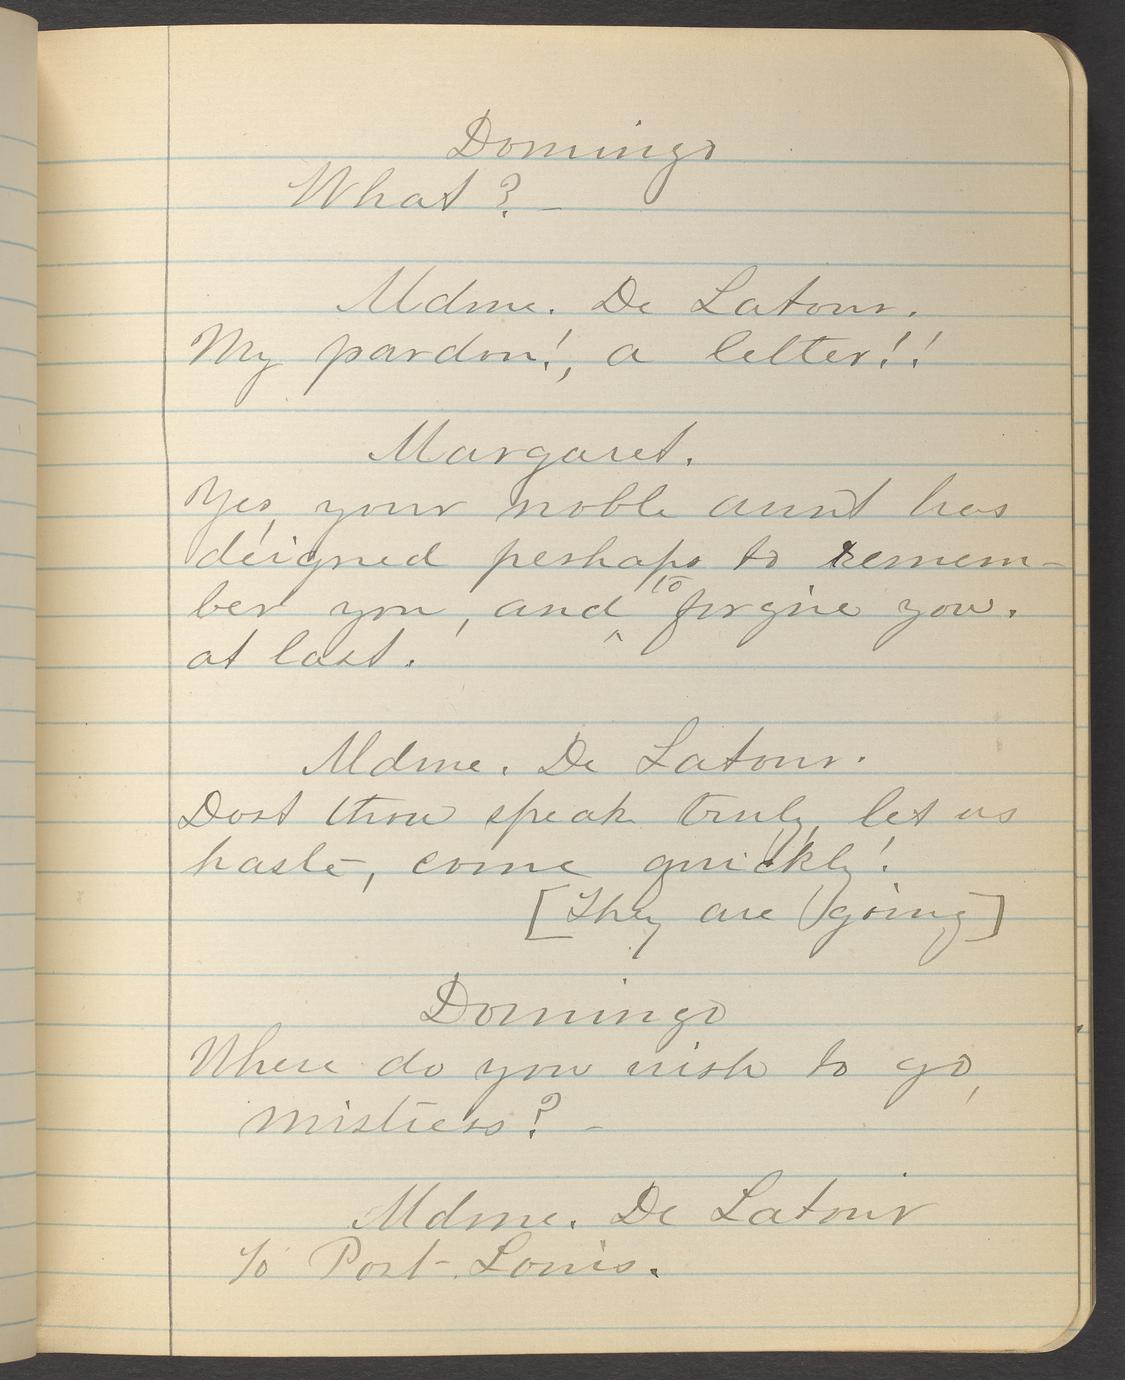 Domingo
What? –
Mdme. De Latour.
My pardon!, a letter!!
Margaret.
Yes, your noble aunt has
deigned perhaps to remem-
ber you, and to forgive you.
at last.
Mdme. De Latour.
Dost thou speak truly, let us
haste, come quickly!
[They are going]
Domingo
Where do you wish to go,
mistress? –
Mdme. De Latour
To Port-Louis.